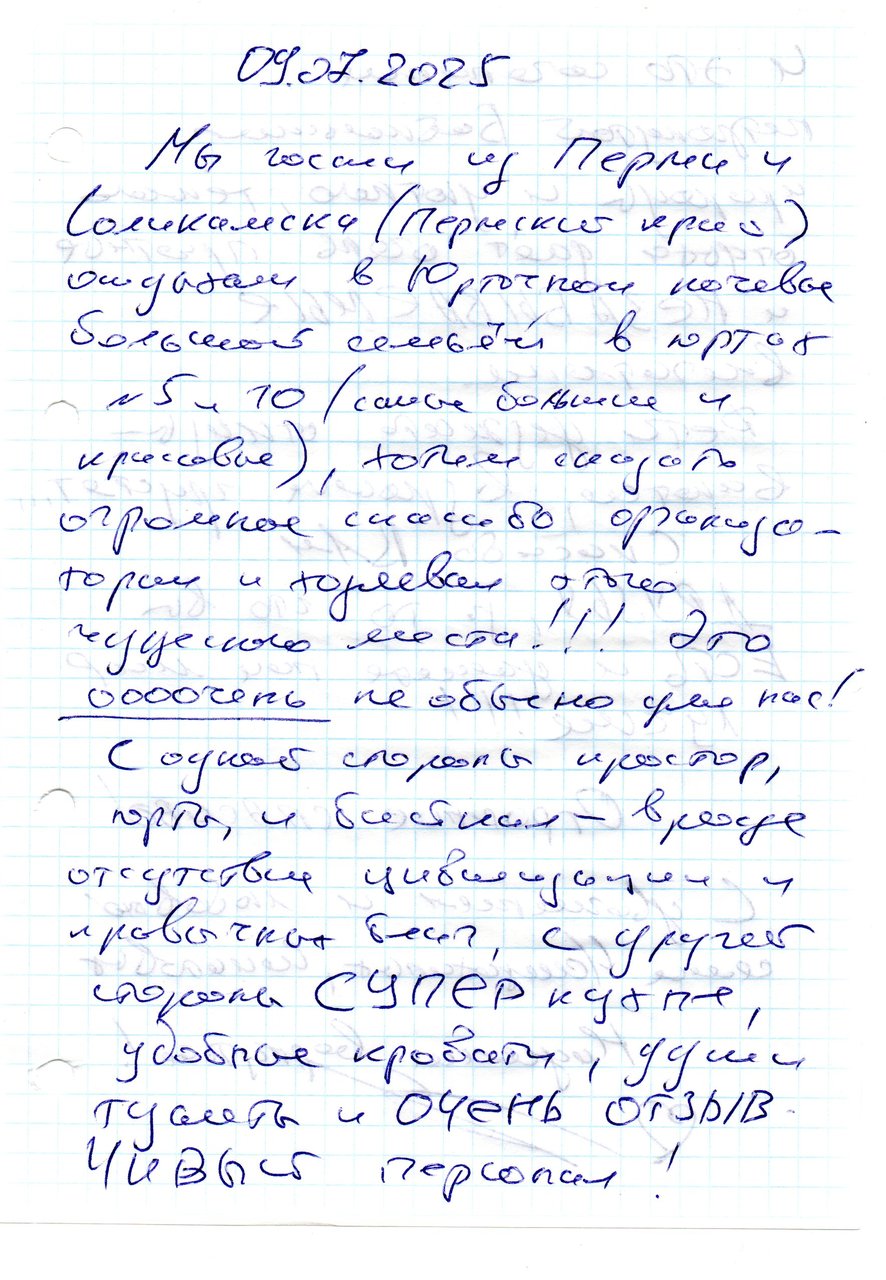 09.07.2025
Мы гости из Перми и
Соликамска (Пермский край)
отдыхали в Юрточном кочевье
большой семьёй в юртах
№5 и 10 (самые большие и
красивые), хотим сказать
огромное спасибо организа-
торам и хозяевам этого
чудесного места!!! Это
оооочень не обычно для нас!
С одной стороны простор,
юрты, и Байкал – вроде
отсутствие цивилизации и
привычных благ, с другой
стороны СУПЕР кухня,
удобные кровати, души
туалеты и ОЧЕНЬ ОТЗЫВ-
ЧИВЫЙ персонал!